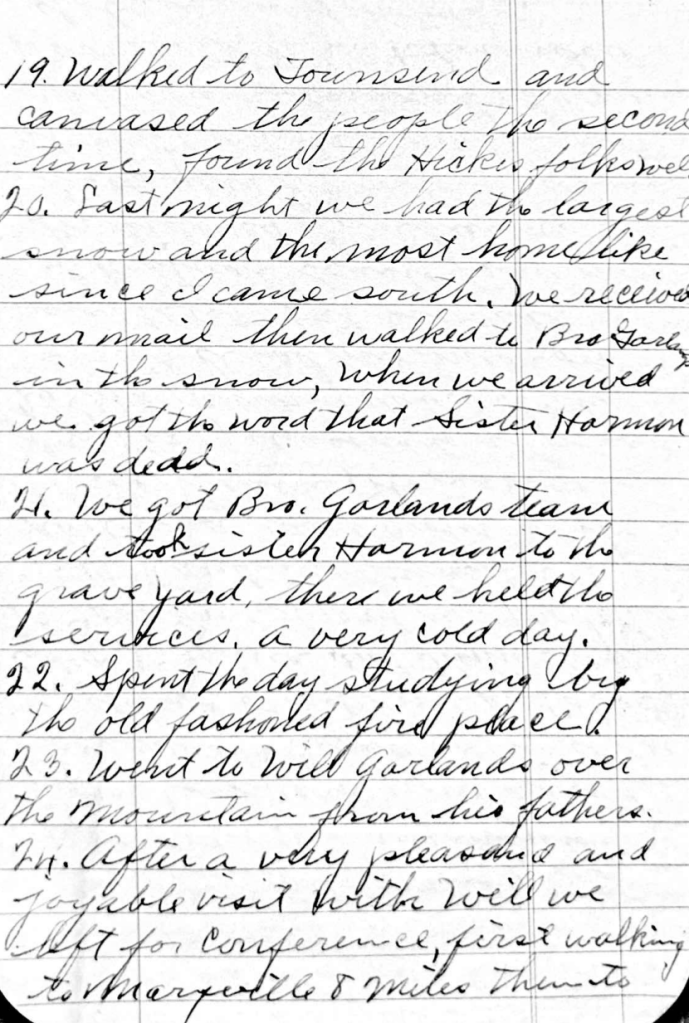 19. Walked to Townsend and
canvased the people the second
time, found the Hickes folks well
20. Last night we had the largest
snow and the most home like
since I came south. We received
our mail then walked to Bro Garlands
in the snow, When we arrived
we got the word that Sister Harmon
was dedd.
21. We got Bro. Garlands team
and took sister Harmon to the
grave yard, there we held the
services. a very cold day.
22. Spent the day studying by
the old fashoned fire place.
23. Went to Will Garlands over
the Mountain from his fathers.
24. After a very pleasand and
joyable visit with Will we
left for conference, first walking
to Maryville 8 Miles then to